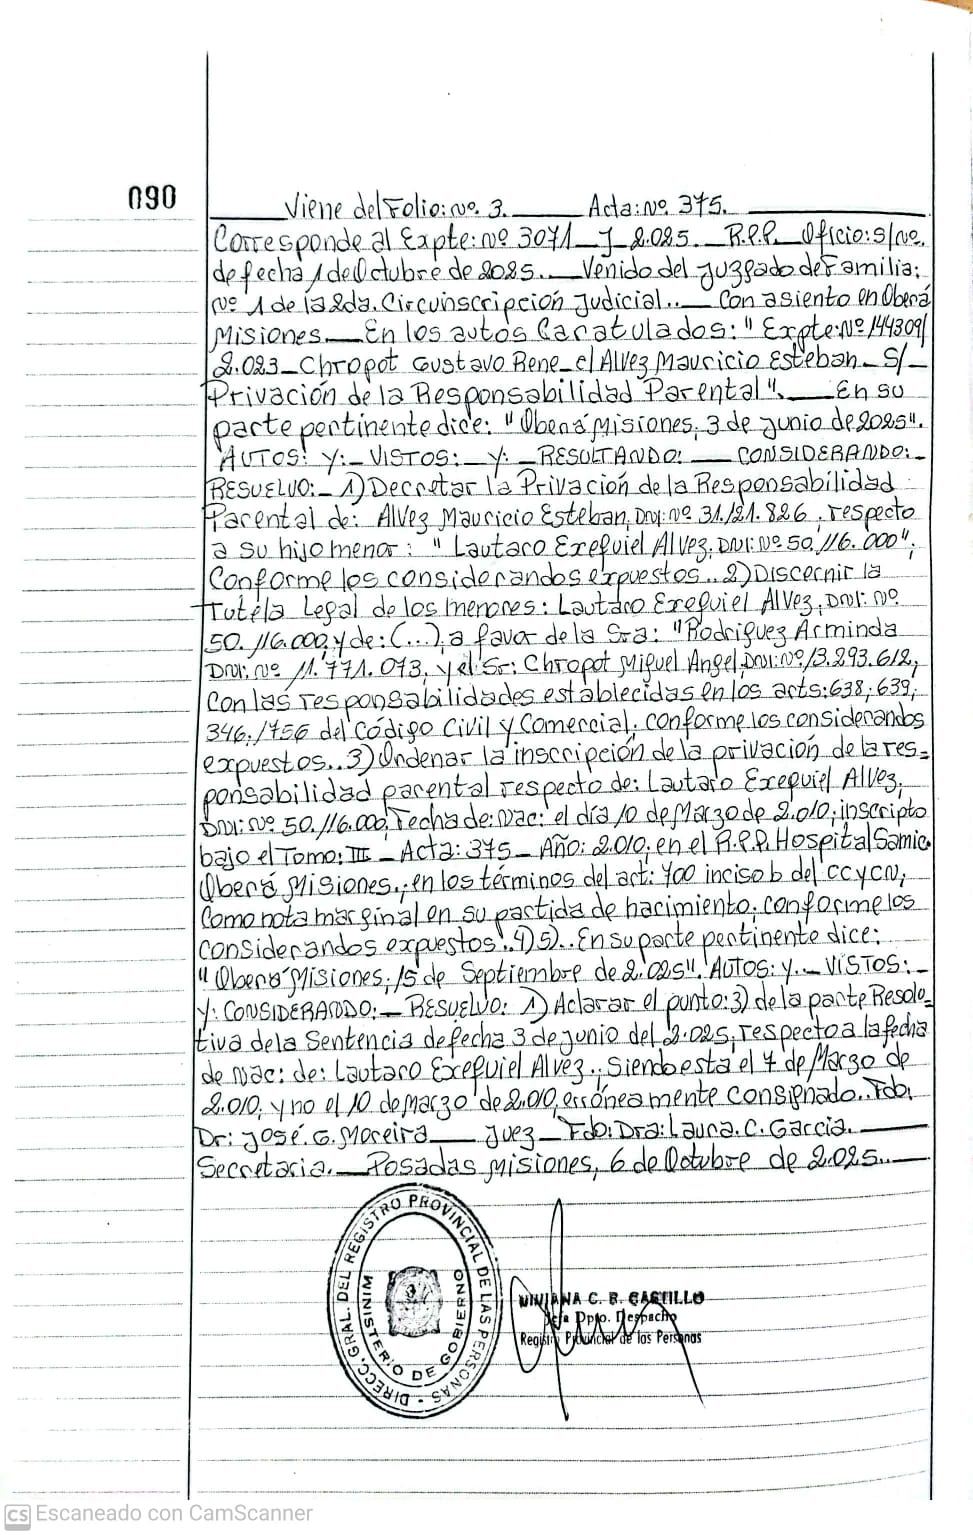 090
Viene del Folio: Nº. 3. Acta: Nº. 375.
Corresponde al Expte: Nº 3071 _ J _ 2.025. _ R.P.P. _ Oficio: s/Nº.
de fecha 1 de Octubre de 2025. _ Venido del Juzgado de Familia;
Nº 1 de la 2da. Circunscripción Judicial.. _ Con asiento en Oberá
Misiones. _ En los autos Caratulados: "Expte: Nº 144309/
2.023 _ Chropot Gustavo Rene _ c/ Alvez Mauricio Esteban _ S/ _
Privación de la Responsabilidad Parental". _ En su
parte pertinente dice: "Oberá Misiones, 3 de Junio de 2025".
AUTOS: Y: _ VISTOS: _ Y: _ RESULTANDO: _ CONSIDERANDO: _
RESUELVO: _ 1) Decretar la Privación de la Responsabilidad
Parental de: Alvez Mauricio Esteban, DNI: Nº 31.121.826, respecto
a su hijo menor: "Lautaro Exequiel Alvez, DNI: Nº 50.116.000";
Conforme los considerandos expuestos.. 2) Discernir la
Tutela Legal de los menores: Lautaro Exequiel Alvez, DNI: Nº.
50.116.000, y de: (...), a favor de la Sra: "Rodriguez Arminda
DNI: Nº 11.771.073, y el Sr: Chropot Miguel Angel, DNI: Nº 13.293.612,
Con las responsabilidades establecidas en los arts: 638; 639;
346; 1756 del Código Civil y Comercial; conforme los considerandos
expuestos.. 3) Ordenar la inscripción de la privación de la res=
ponsabilidad parental respecto de: Lautaro Exequiel Alvez,
DNI: Nº 50.116.000, Fecha de: Nac: el día 10 de Marzo de 2.010; inscripto
bajo el Tomo: III _ Acta: 375 _ Año: 2.010; en el R.P.P. Hospital Samic.
Oberá Misiones.; en los términos del art: 700 inciso b del CCYCN,
Como nota marginal en su partida de nacimiento; conforme los
considerandos expuestos.. 4) 5).. En su parte pertinente dice:
"Oberá Misiones; 15 de Septiembre de 2.025". AUTOS: Y. _ VISTOS: _
Y: CONSIDERANDO: _ RESUELVO: 1) Aclarar el punto: 3) de la parte Resolu=
tiva de la Sentencia de fecha 3 de Junio del 2.025, respecto a la fecha
de Nac: de: Lautaro Exequiel Alvez.; Siendo esta el 7 de Marzo de
2.010, y no el 10 de Marzo de 2.010, erróneamente consignado.. Fdo:
Dr: José. G. Moreira _ Juez _ Fdo: Dra: Laura. C. García. _
Secretaria. _ Posadas Misiones, 6 de Octubre de 2.025.. _
DIRECC. GRAL. DEL REGISTRO PROVINCIAL DE LAS PERSONAS -
MINISTERIO DE GOBIERNO
VIVIANA C. B. CASTILLO
Jefa Dpto. Despacho
Registro Provincial de las Personas
CS Escaneado con CamScanner